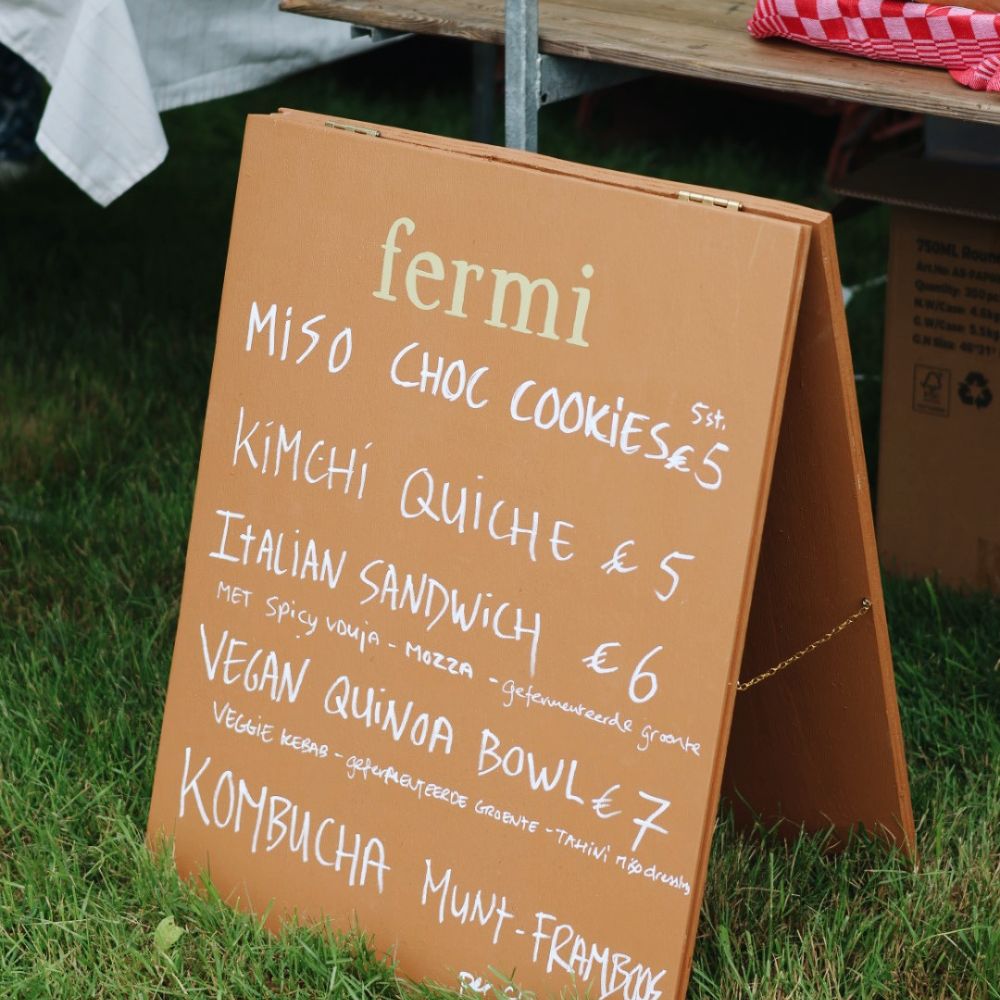 fermi
MiSO CHOC COOKiES 5st. € 5
KiMCHi QUiCHE € 5
ITALiAN SANDWiCH € 6
MET SPicy VDUJA - MOZZA - gefermenteerde groente
VEGAN QUiNOA BOWL € 7
VEGGIE KEBAB - gefERMENTEERDE GROENTE - TAHiNi MiSO dressing
KOMBUCHA MUNT-FRAMBOOS
750ML Roun
Quantity: 300
N.W/Case: 4.6kg
G.W/Case: 5.5kg
FSC